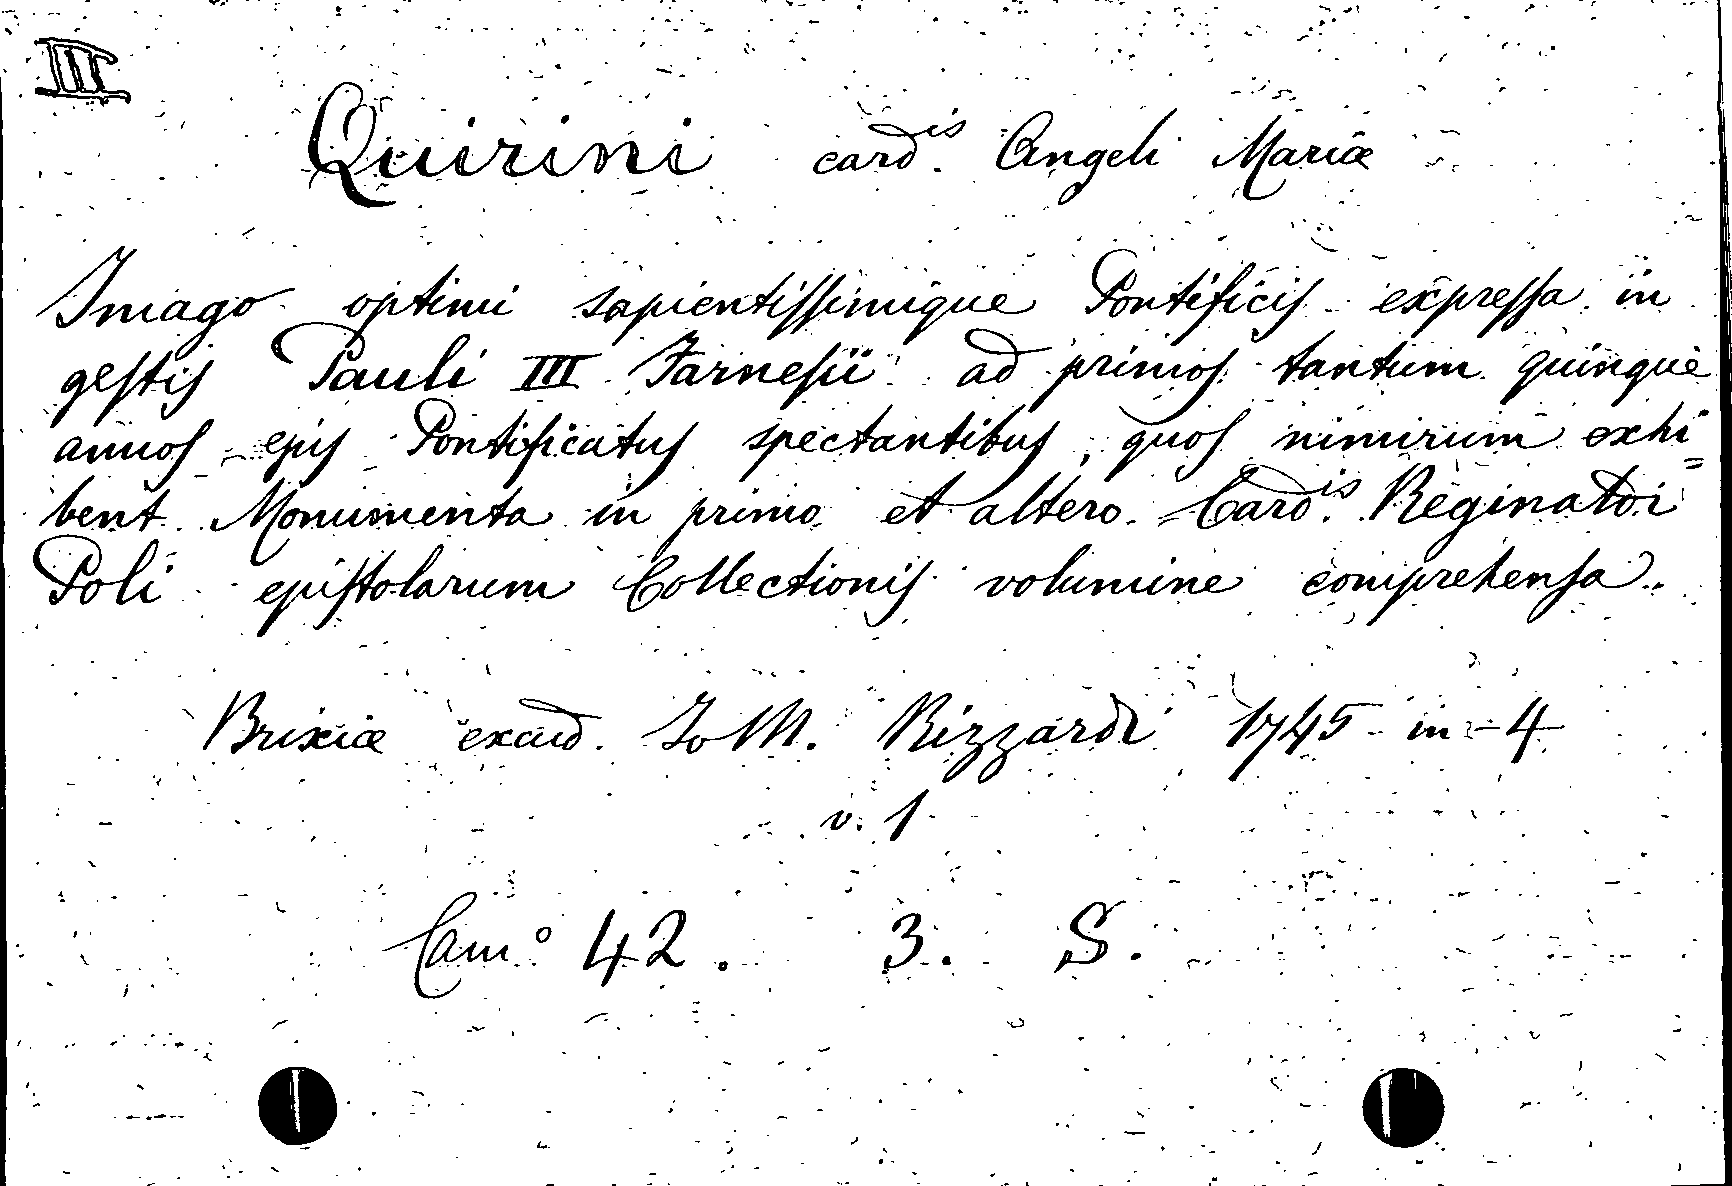 III
Quirini card.is Angeli Mariæ
Imago optimi sapientissimique Pontificis expressa in
gestis Pauli III Farnesii ad primos tantum quinque
annos ejus Pontificatus spectantibus, quos nimirum exhi=
bent Monumenta in primo et altero Card.is Reginaldi
Poli epistolarum Collectionis volumine comprehensa.
Brixiæ excud. Jo M. Rizzardi 1745 in-4
v. 1
Cam.° 42. 3. S.